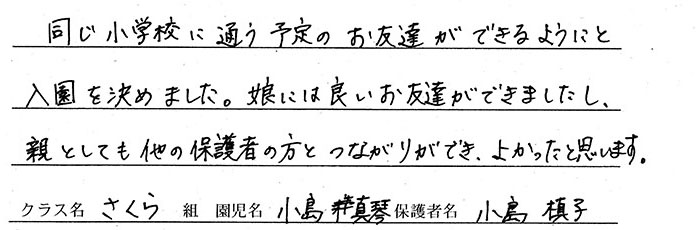 同じ小学校に通う予定のお友達ができるようにと
入園を決めました。娘には良いお友達ができましたし、
親としても他の保護者の方とつながりができ、よかったと思います。
クラス名 さくら 組 園児名 小島 真琴 保護者名 小島 槙子